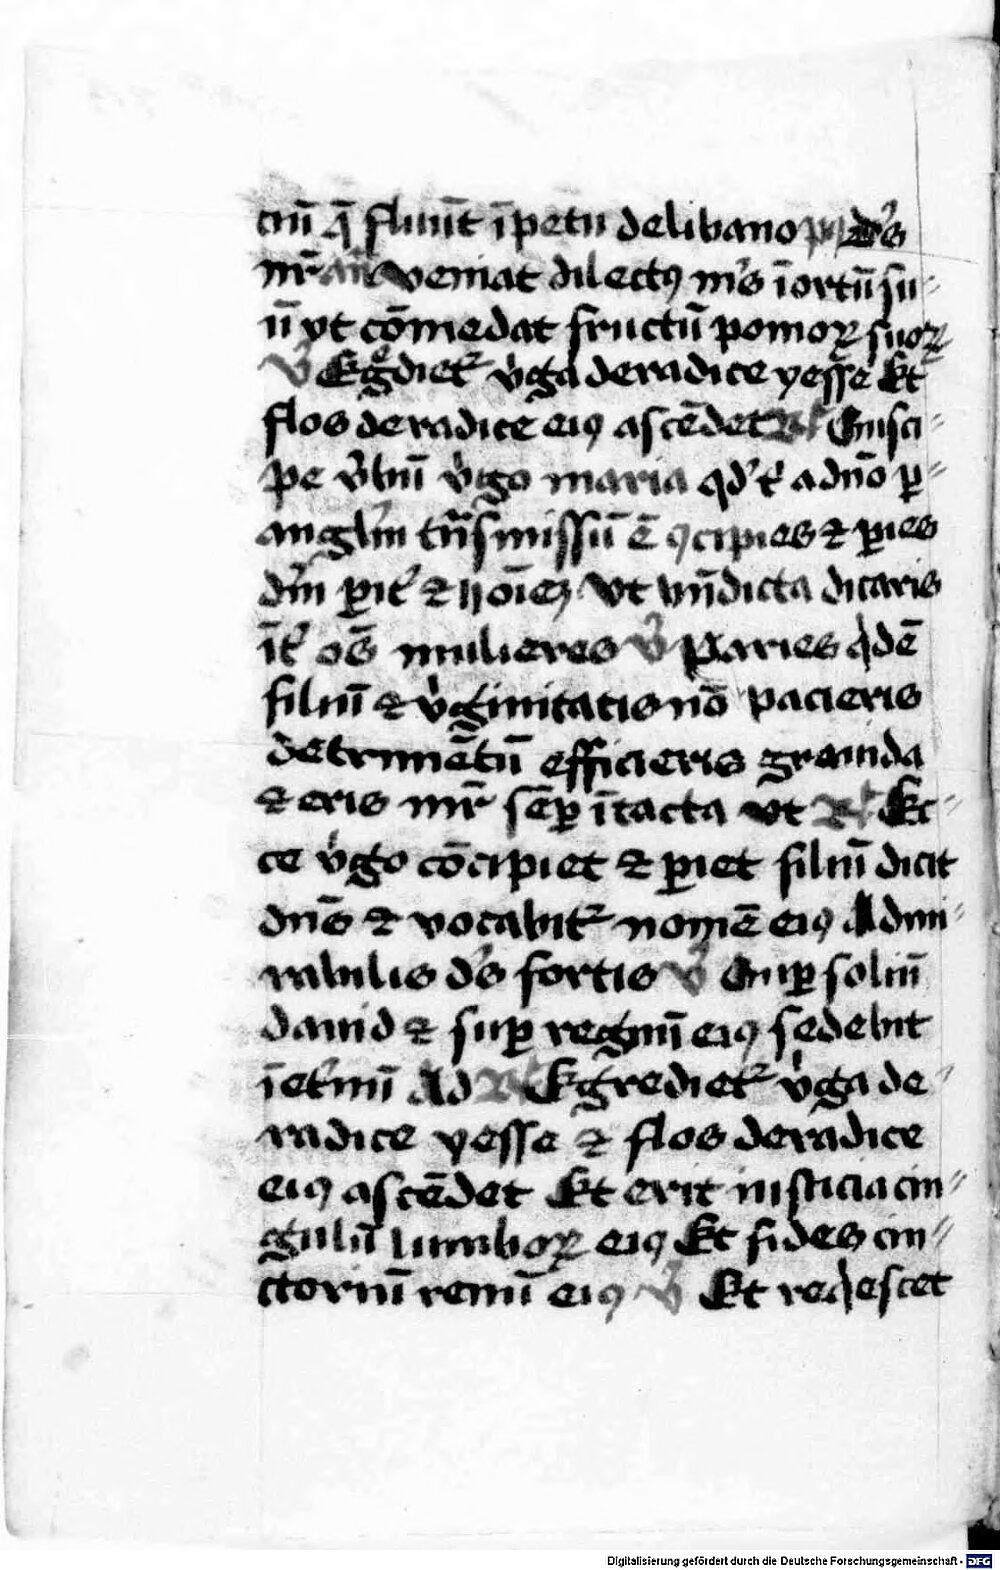 ciū q̄ fluūt īpetu de libano ps ds̄
nr̄ an̄ veniat dilectꝯ mꝰs ī ortū su⸗
ū vt cōmedat fructū pomoꝝ suoꝝ
V̓ Egͤdietʳ v̓ga de radice yesse Et
flos de radice eiꝯ ascēdet R̓ Susci⸗
pe v̓bū v̓go maria qd̓ t̓ a dn̄o ꝑ⸗
angl̓m tn̄smissū ē ꝯcipies ⁊ ꝑies
dm̄ ꝑit̓ ⁊ hoīeꝫ Vt bn̄dicta dicaris
īt̓ oēs mulieres V̓ Paries qͥdē
filiū ⁊ v̓ginitatis nō pacieris
detrimētū efficieris grauida
⁊ eris mr̄ sēꝑ ītacta vt R̓ Ec⸗
ce v̓go cōcipiet ⁊ ꝑiet filiū dicit
dn̄s ⁊ vocabitʳ nomē eiꝯ Admi⸗
rabilis ds̄ fortis V̓ Suꝑ soliū
dauid ⁊ suꝑ regnū eiꝯ sedebit
ī et̓nū Ad R̓ Egredietʳ v̓ga de⸗
radice yesse ⁊ flos de radice
eiꝯ ascēdet Et erit iusticia cin⸗
gulū lumboꝝ eiꝯ Et fides cin⸗
ctoriū renū eiꝯ V̓ Et reqͥescet
Digitalisierung gefördert durch die Deutsche Forschungsgemeinschaft - DFG